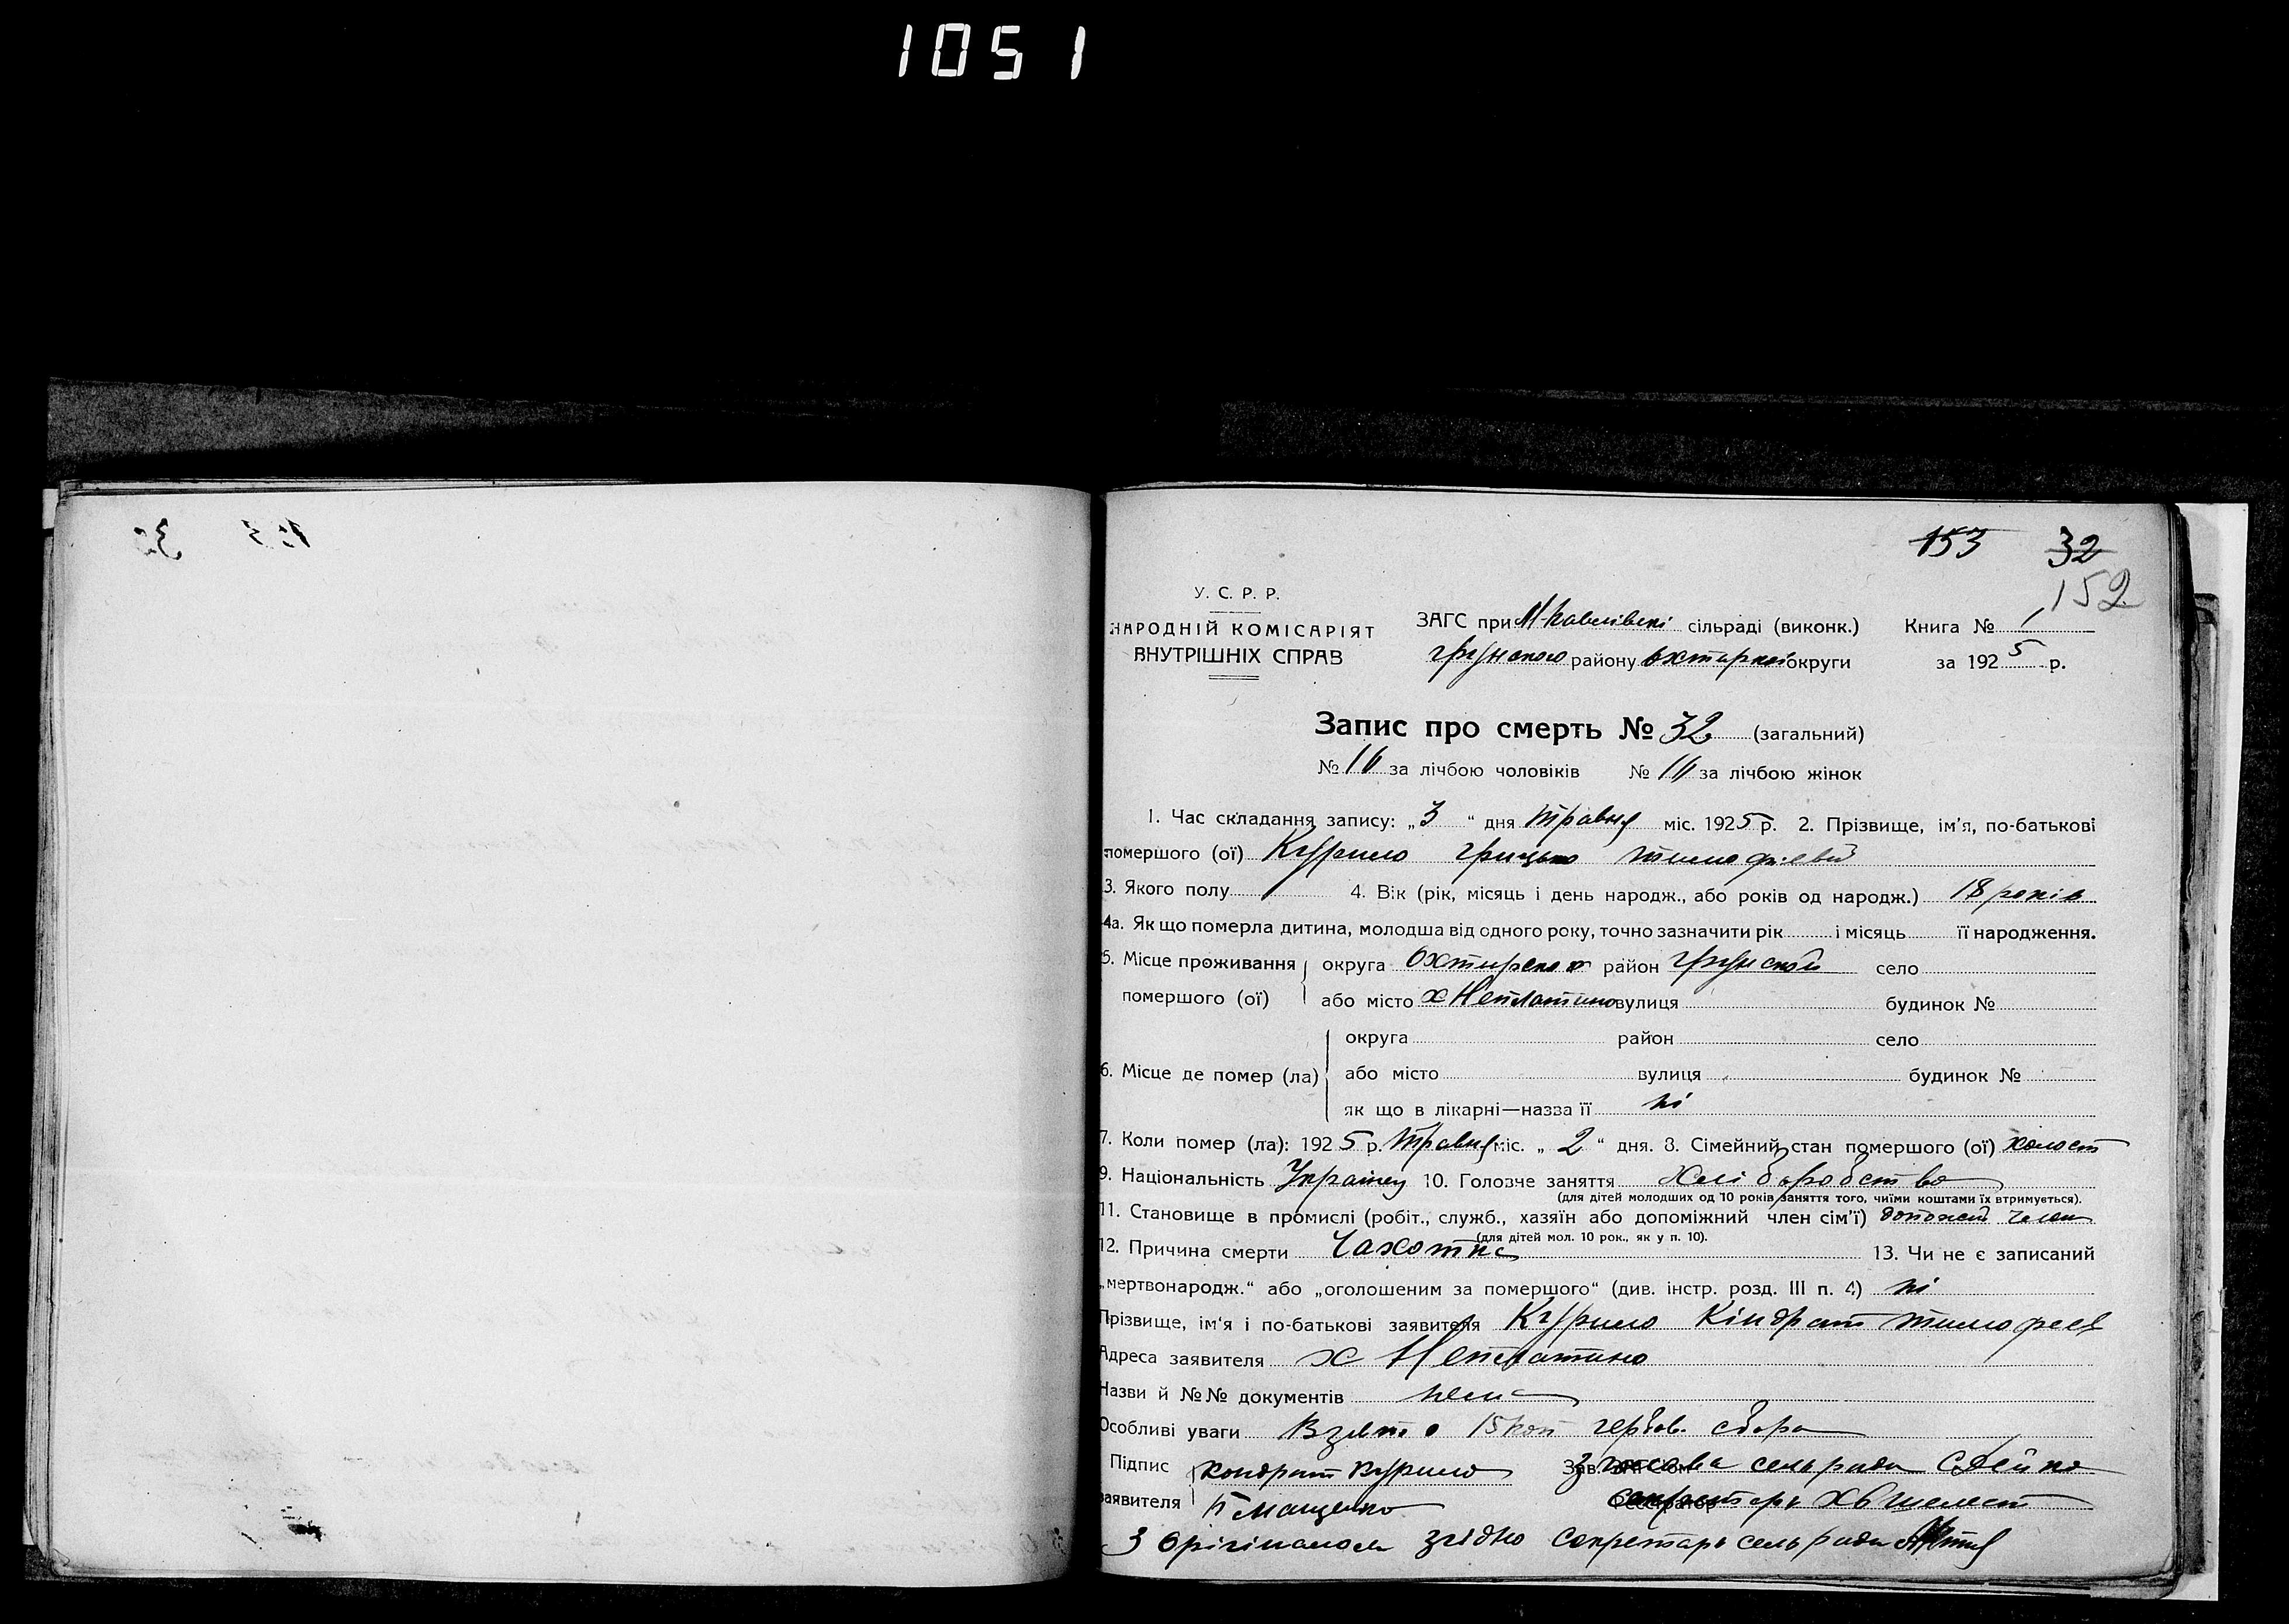 1051
153 32
152
У. С. Р. Р.
НАРОДНІЙ КОМІСАРІЯТ
ВНУТРІШНІХ СПРАВ
ЗАГС при сільраді (виконк.) Книга № 1
Грунского району Охтиркой округи за 1925 р.
Запис про смерть № 32 (загальний)
№ 16 за лічбою чоловіків № 16 за лічбою жінок
1. Час складання запису: „3“ дня травня міс. 1925 р. 2. Прізвище, ім'я, по-батькові
помершого (ої) Курило Грицько тимофіевий
3. Якого полу 4. Вік (рік, місяць і день народж., або років од народж.) 18 років
4а. Як що померла дитина, молодша від одного року, точно зазначити рік і місяць її народження.
5. Місце проживання округа Охтирског район Грунской село
помершого (ої) або місто х Неплатино вулиця будинок №
округа район село
6. Місце де помер (ла) або місто вулиця будинок №
як що в лікарні—назва її ні
7. Коли помер (ла): 1925 р. травня міс. „2“ дня. 8. Сімейний стан помершого (ої) холост
9. Національність Украінец 10. Головне заняття хліборобство
(для дітей молодших од 10 років заняття того, чиїми коштами їх втримується).
11. Становище в промислі (робіт., служб., хазяїн або допоміжний член сім'ї) член
(для дітей мол. 10 рок., як у п. 10).
12. Причина смерти Чахотка 13. Чи не є записаний
„мертвонародж.“ або „оголошеним за помершого“ (див. інстр. розд. III п. 4) ні
Прізвище, ім'я і по-батькові заявителя Курило Кіндрат тимофеев
Адреса заявителя х Неплатино
Назви й №№ документів нема
Особливі уваги Взято 15 коп гербов. сбора
Підпис Кондрат Курило Зав. голова сельради С Дейко
заявителя Мащенко Реєстратор секретарь Шелест
З Орігіналом згідно Секретарь сельради